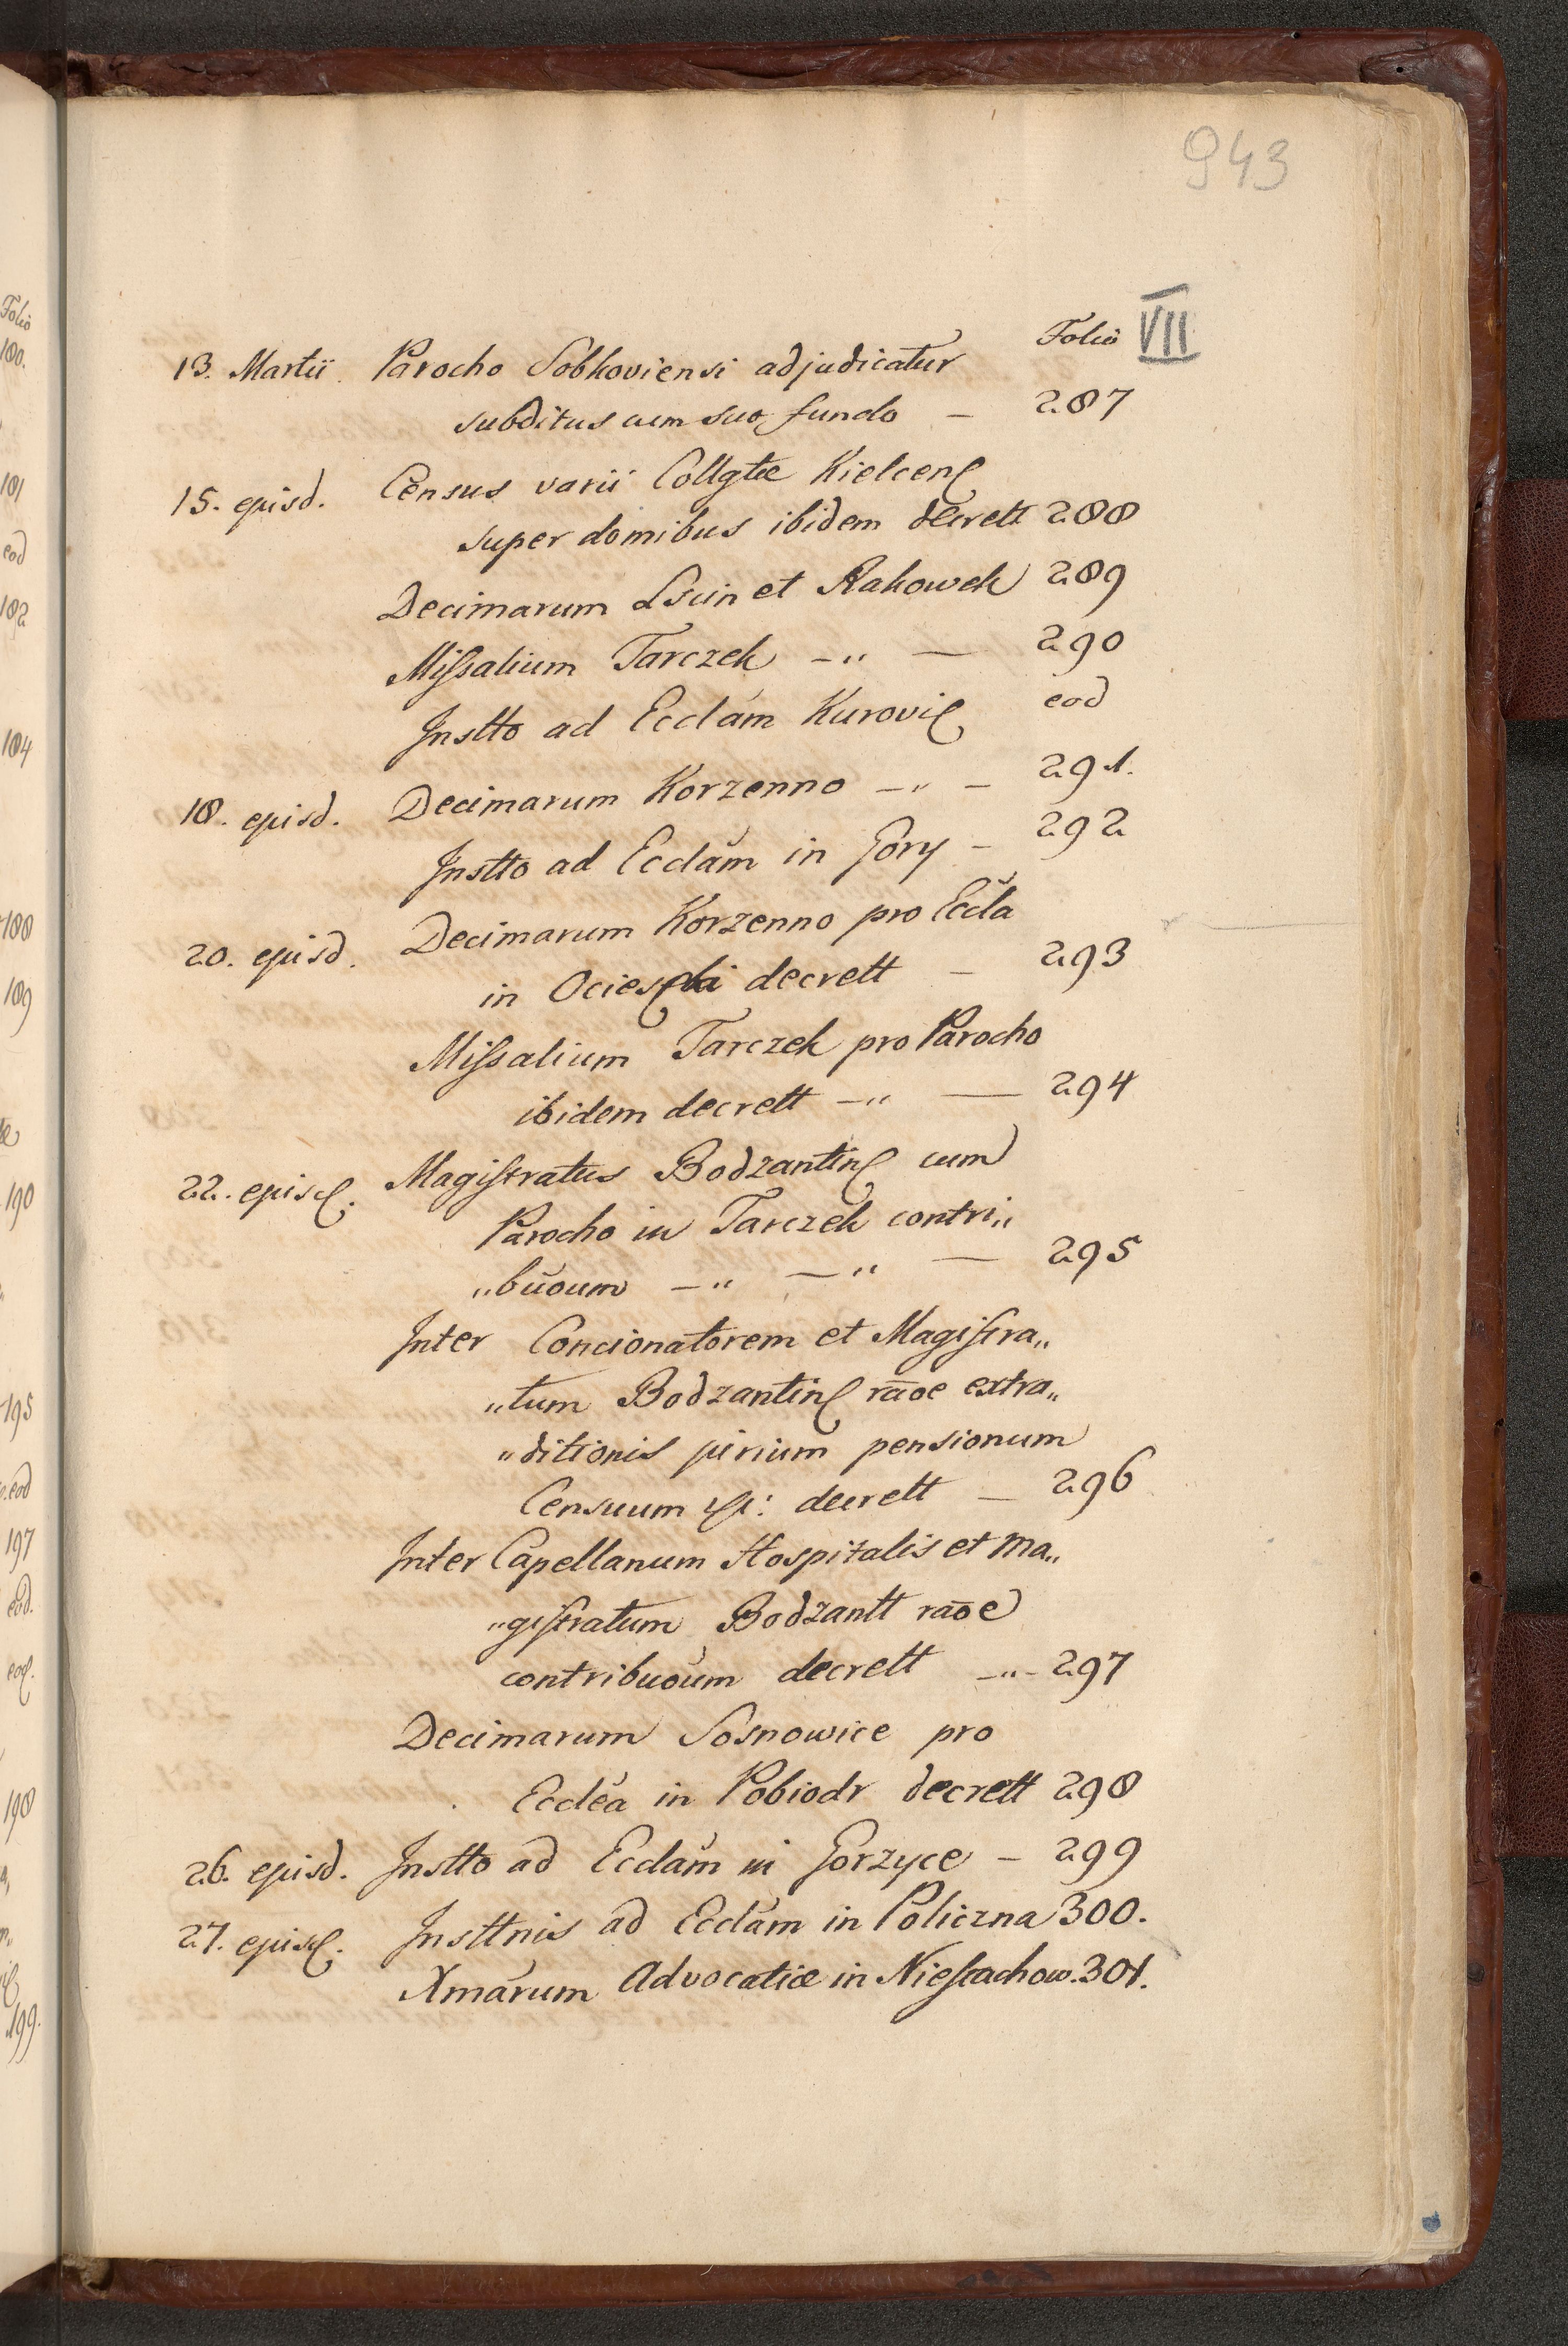 943
Folio VII
13. Martii. Parocho Sobkoviensi adjudicatur
subditus cum suo fundo – 287
15. ejusd. Census varii Collgtæ Kielcens
super domibus ibidem decrett 288
Decimarum Lscin et Rakowek 289
Missalium Tarczek –„ — 290
Instto ad Ecclam Kurovis eod
18. ejusd. Decimarum Korzenno –„ – 291.
Instto ad Ecclam in Gory – 292
20. ejusd. Decimarum Korzenno pro Eccla
in decrett – 293
Missalium Tarczek pro Parocho
ibidem decrett –„ — 294
22. ejusd. Magistratus Bodzantins cum
Parocho in Tarczek contri„
„buoum –„ –„ — 295
Inter Concionatorem et Magistra„
„tum Bodzantins raoe extra„
„ditionis jurium pensionum
Censuum decrett – 296
Inter Capellanum Hospitalis et Ma„
„gistratum Bodzantt raoe
contribuoum decrett –„– 297
Decimarum Sosnowice pro
Ecclea in Pobiodr decrett 298
26. ejusd. Instto ad Ecclam in Gorzyce – 299
27. ejusd. Insttnis ad Ecclam in Policzna 300.
Xmarum Advocatiæ in Niestachow. 301.
Folio
180.
181
eod
182
184
188
189
190
195
eod
197
eod.
eod.
198
199.